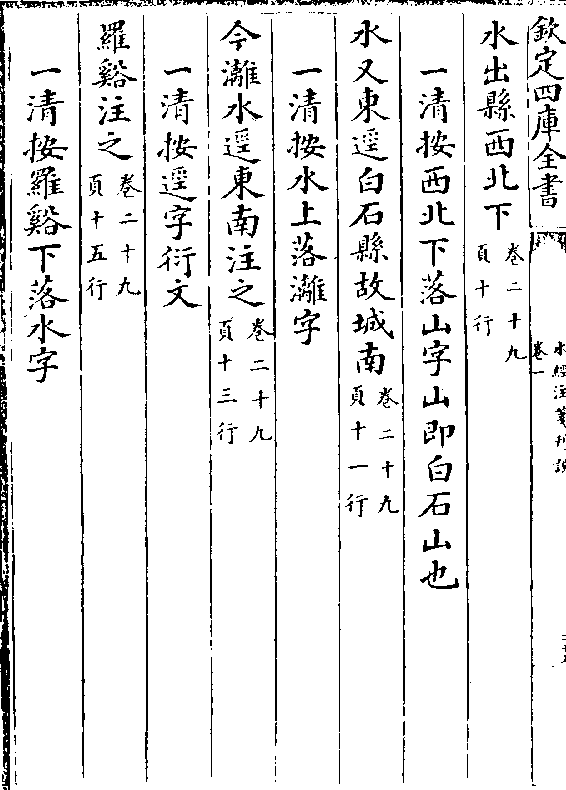 欽定四庫全書
水經注箋刊誤
卷一
水出縣西北下卷二十九頁十行
一清按西北下落山字山即白石山也
水又東逕白石縣故城南卷二十九頁十一行
一清按水上落灕字
今灕水逕東南注之卷二十九頁十三行
一清按逕字衍文
羅谿注之卷二十九頁十五行
一清按羅谿下落水字